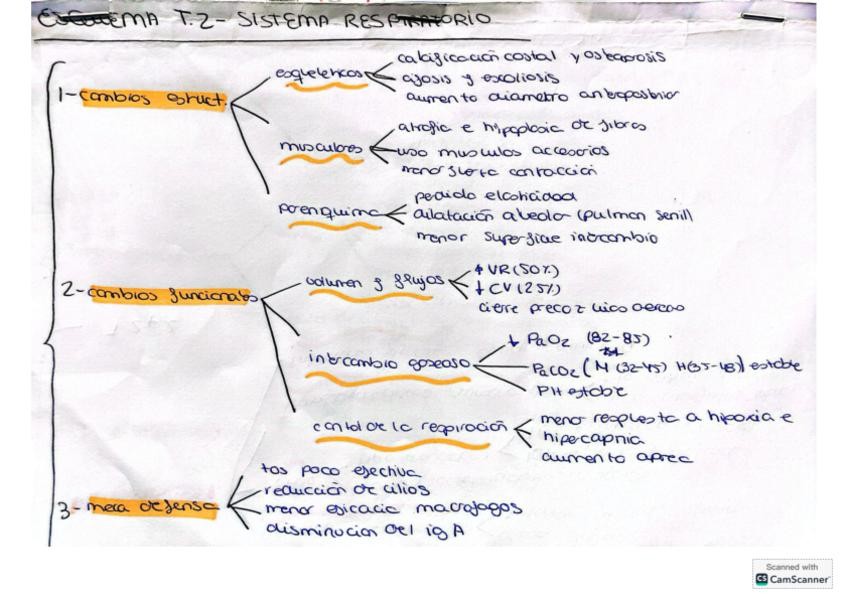 ESQUEMA T.2- SISTEMA RESPIRATORIO
1- cambios estruct.
esqueleticos
calcificación costal y osteoporosis
cifosis y escoliosis
aumento diametro anteroposterior
musculares
atrofia e hipoplasia de fibras
uso musculos accesorios
menor fuerza contracción
parenquima
perdida elasticidad
dilatación alveolar (pulmon senil)
menor superficie intercambio
2- cambios funcionales
volumen y flujos
↑ VR (50%)
↓ CV (25%)
cierre precoz vias aereas
intercambio gaseoso
↓ PaO2 (82-85)
PaCO2 (M (32-45) H(35-48)) estable
PH estable
control de la respiración
menor respuesta a hipoxia e
hipercapnia
aumento apnea
3- meca defensa
tos poco efectiva
reducción de cilios
menor eficacia macrofagos
disminucion del ig A
Scanned with
CS CamScanner